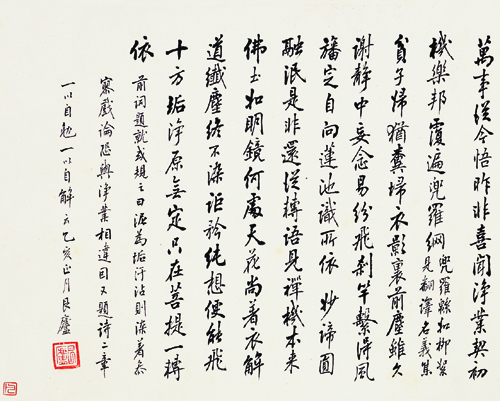 萬事從今悟昨非喜聞淨業契初
機樂邦覆遍兜羅網兜羅緜如柳絮
見翻譯名義集
貧子歸猶糞掃衣影裏前塵雖久
謝靜中妄念易紛飛剎竿繫得風
旛定自向蓮池識所依 妙諦圓
融泯是非還從轉語見禪機本來
佛土如明鏡何處天花尚著衣解
道纖塵終不染詎矜純想便能飛
十方垢淨原無定只在菩提一轉
依 前詞題就或規之曰為垢汙沾則染着
戲論恐與淨業相違因又題詩二章
一以自勉一以自解云乙亥正月艮廬